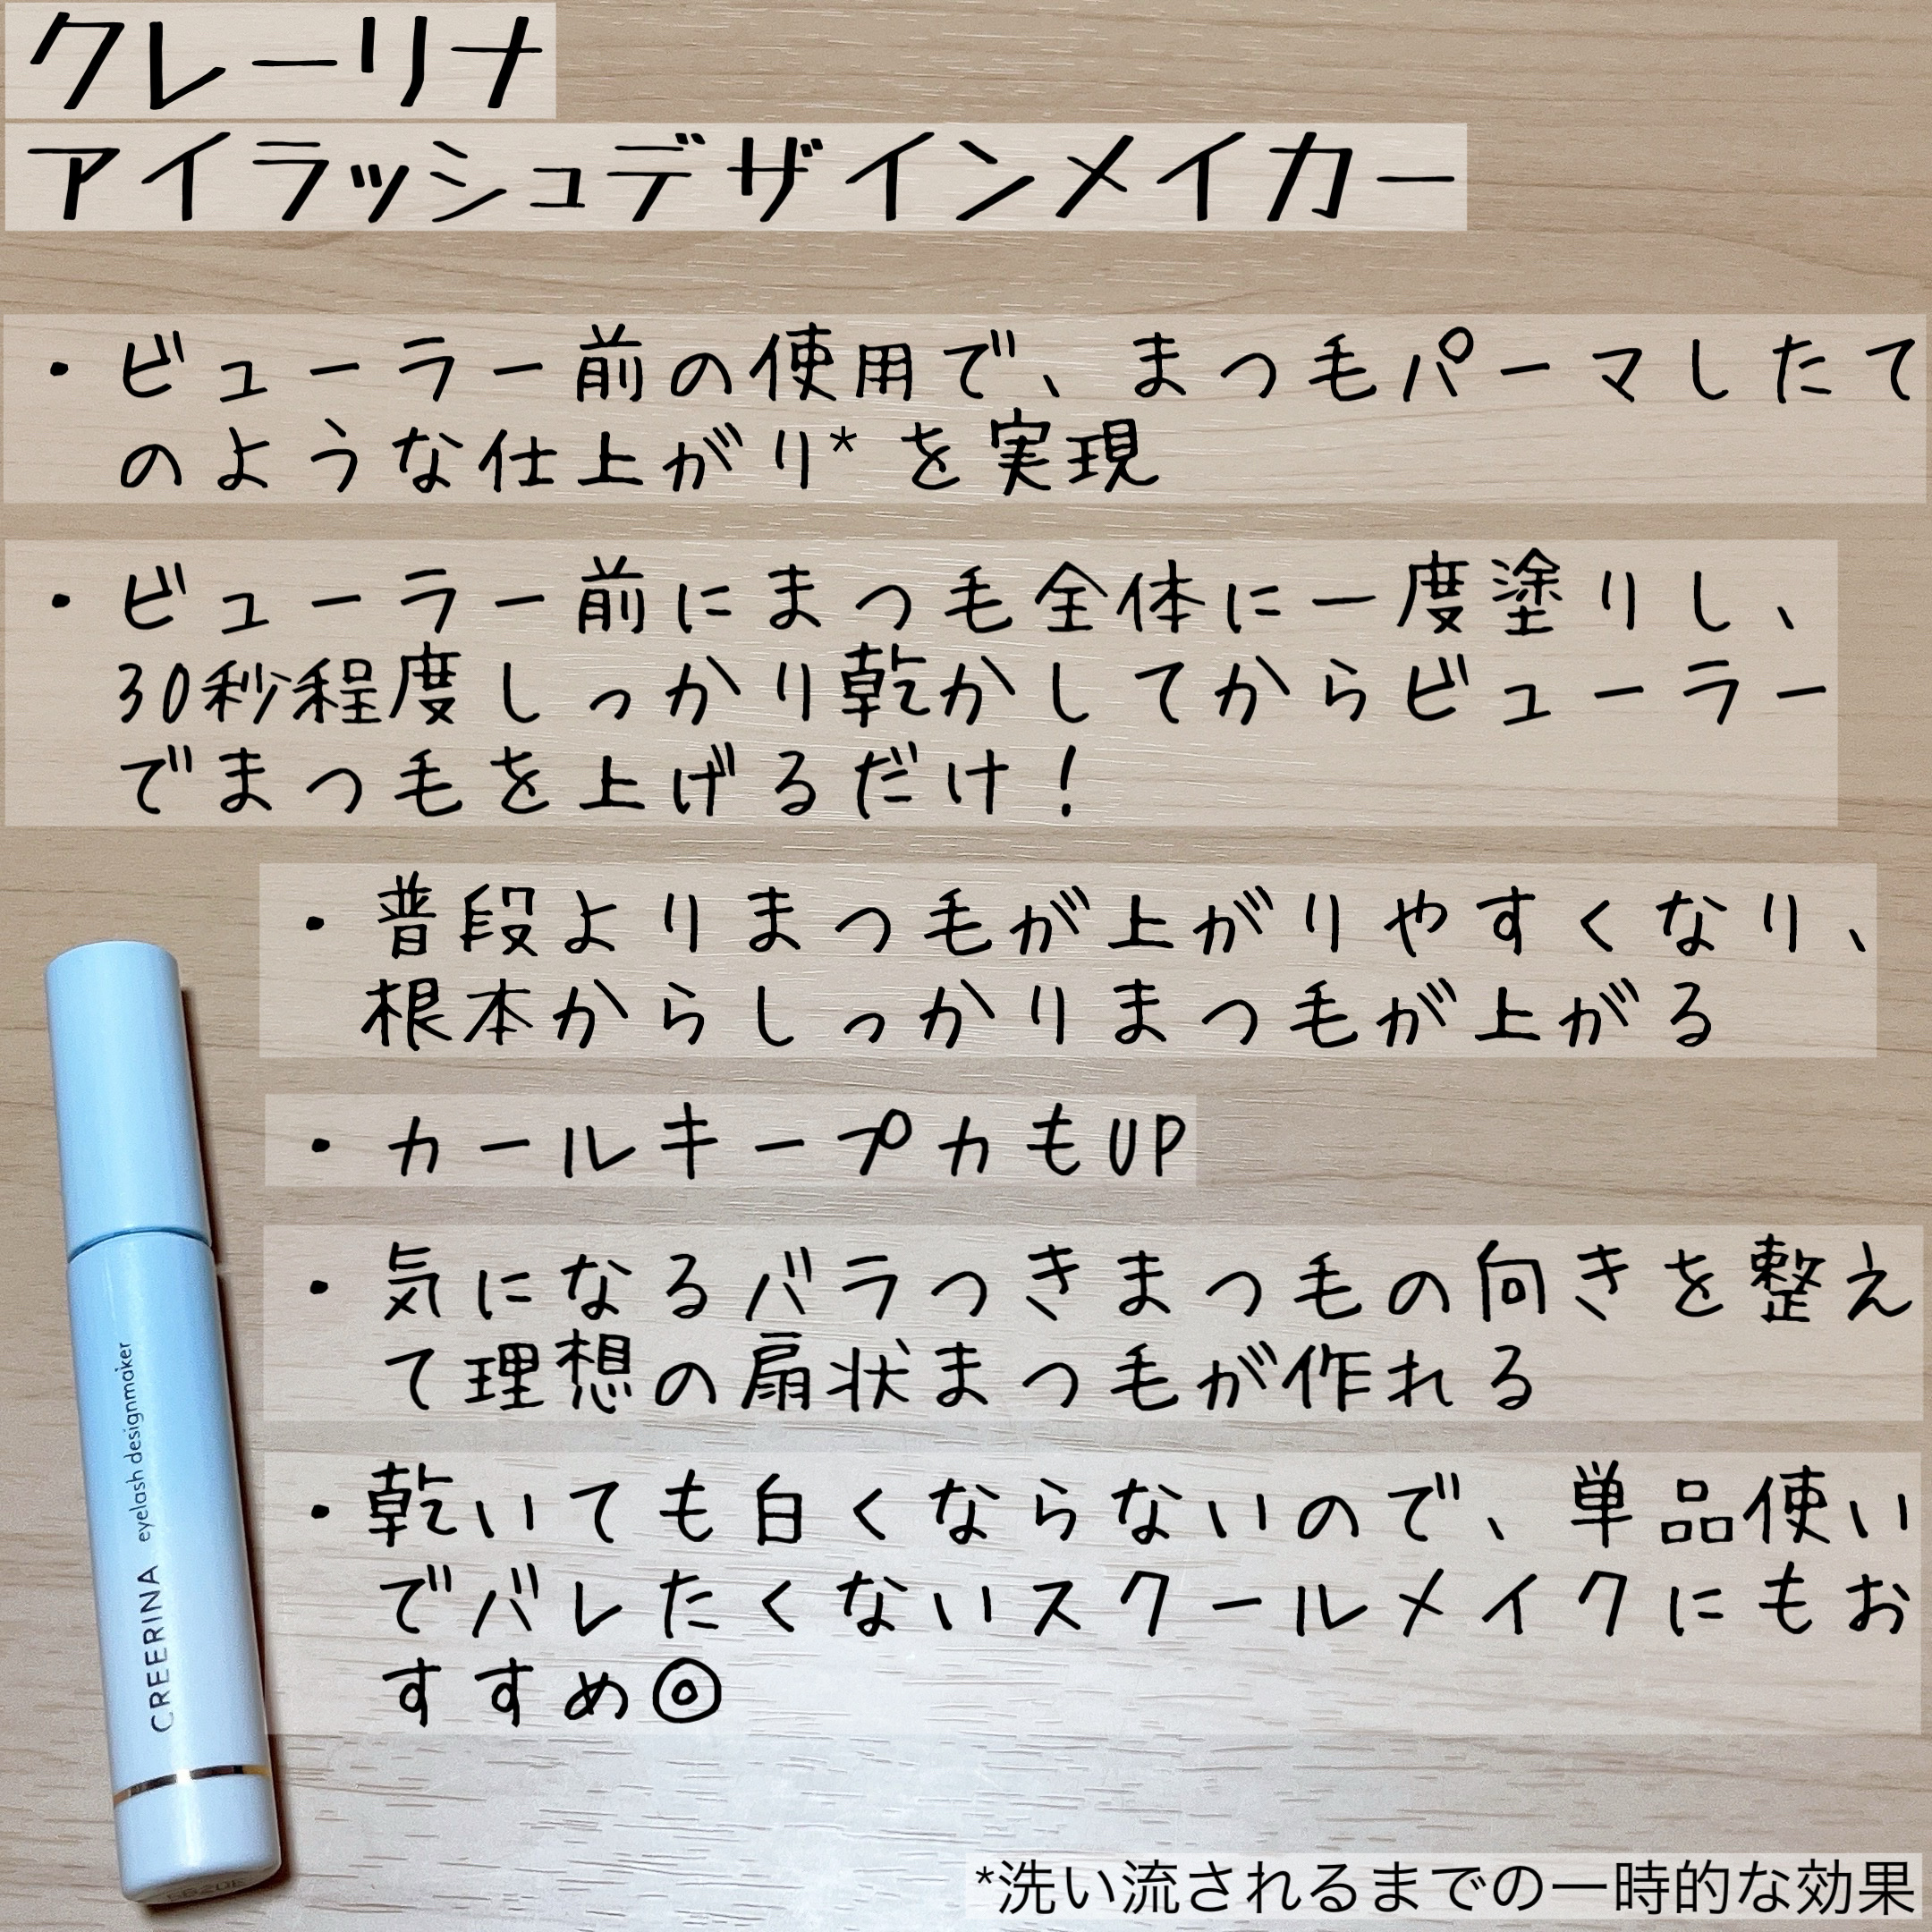 クレーリナ
アイラッシュデザインメイカー
・ビューラー前の使用で、まつ毛パーマしたて
のような仕上がり*を実現
・ビューラー前にまつ毛全体に一度塗りし、
30秒程度しっかり乾かしてからビューラー
でまつ毛を上げるだけ！
・普段よりまつ毛が上がりやすくなり、
根本からしっかりまつ毛が上がる
・カールキープ力もUP
・気になるバラつきまつ毛の向きを整え
て理想の扇状まつ毛が作れる
・乾いても白くならないので、単品使い
でバレたくないスクールメイクにもお
すすめ◎
CREERINA eyelash designmaker
*洗い流されるまでの一時的な効果